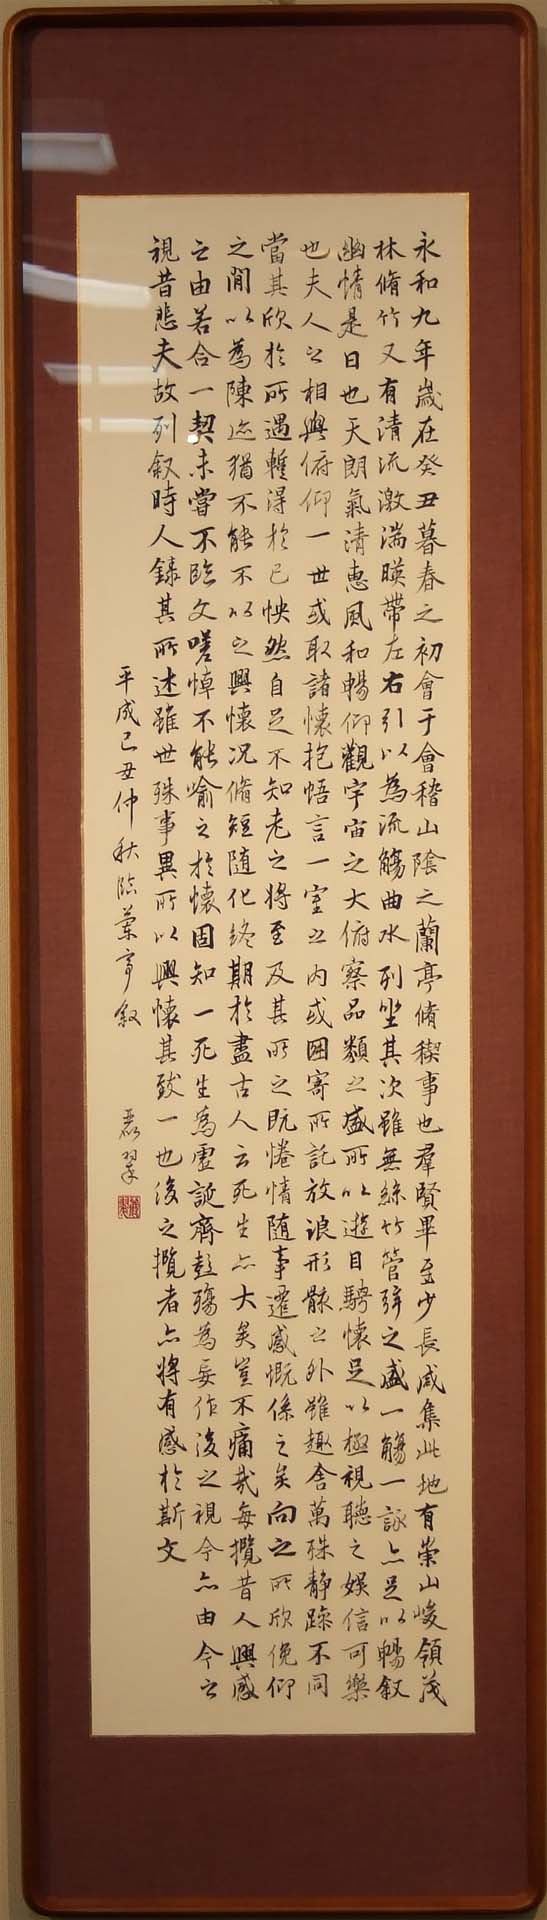 永和九年歲在癸丑暮春之初會于會稽山陰之蘭亭脩稧事也羣賢畢至少長咸集此地有崇山峻領茂
林脩竹又有清流激湍暎帶左右引以為流觴曲水列坐其次雖無絲竹管弦之盛一觴一詠亦足以暢叙
幽情是日也天朗氣清惠風和暢仰觀宇宙之大俯察品類之盛所以遊目騁懷足以極視聽之娛信可樂
也夫人之相與俯仰一世或取諸懷抱悟言一室之內或因寄所託放浪形骸之外雖趣舍萬殊靜躁不同
當其欣於所遇暫得於己怏然自足不知老之將至及其所之既惓情随事遷感慨係之矣向之所欣俛仰
之閒以為陳迹猶不能不以之興懷況脩短随化終期於盡古人云死生亦大矣豈不痛哉每攬昔人興感
之由若合一契未嘗不臨文嗟悼不能喻之於懷固知一死生為虛誕齊彭殤為妄作後之視今亦由今之
視昔悲夫故列叙時人錄其所述雖世殊事異所以興懷其致一也後之攬者亦將有感於斯文
平成己丑仲秋臨蘭亭叙
翠